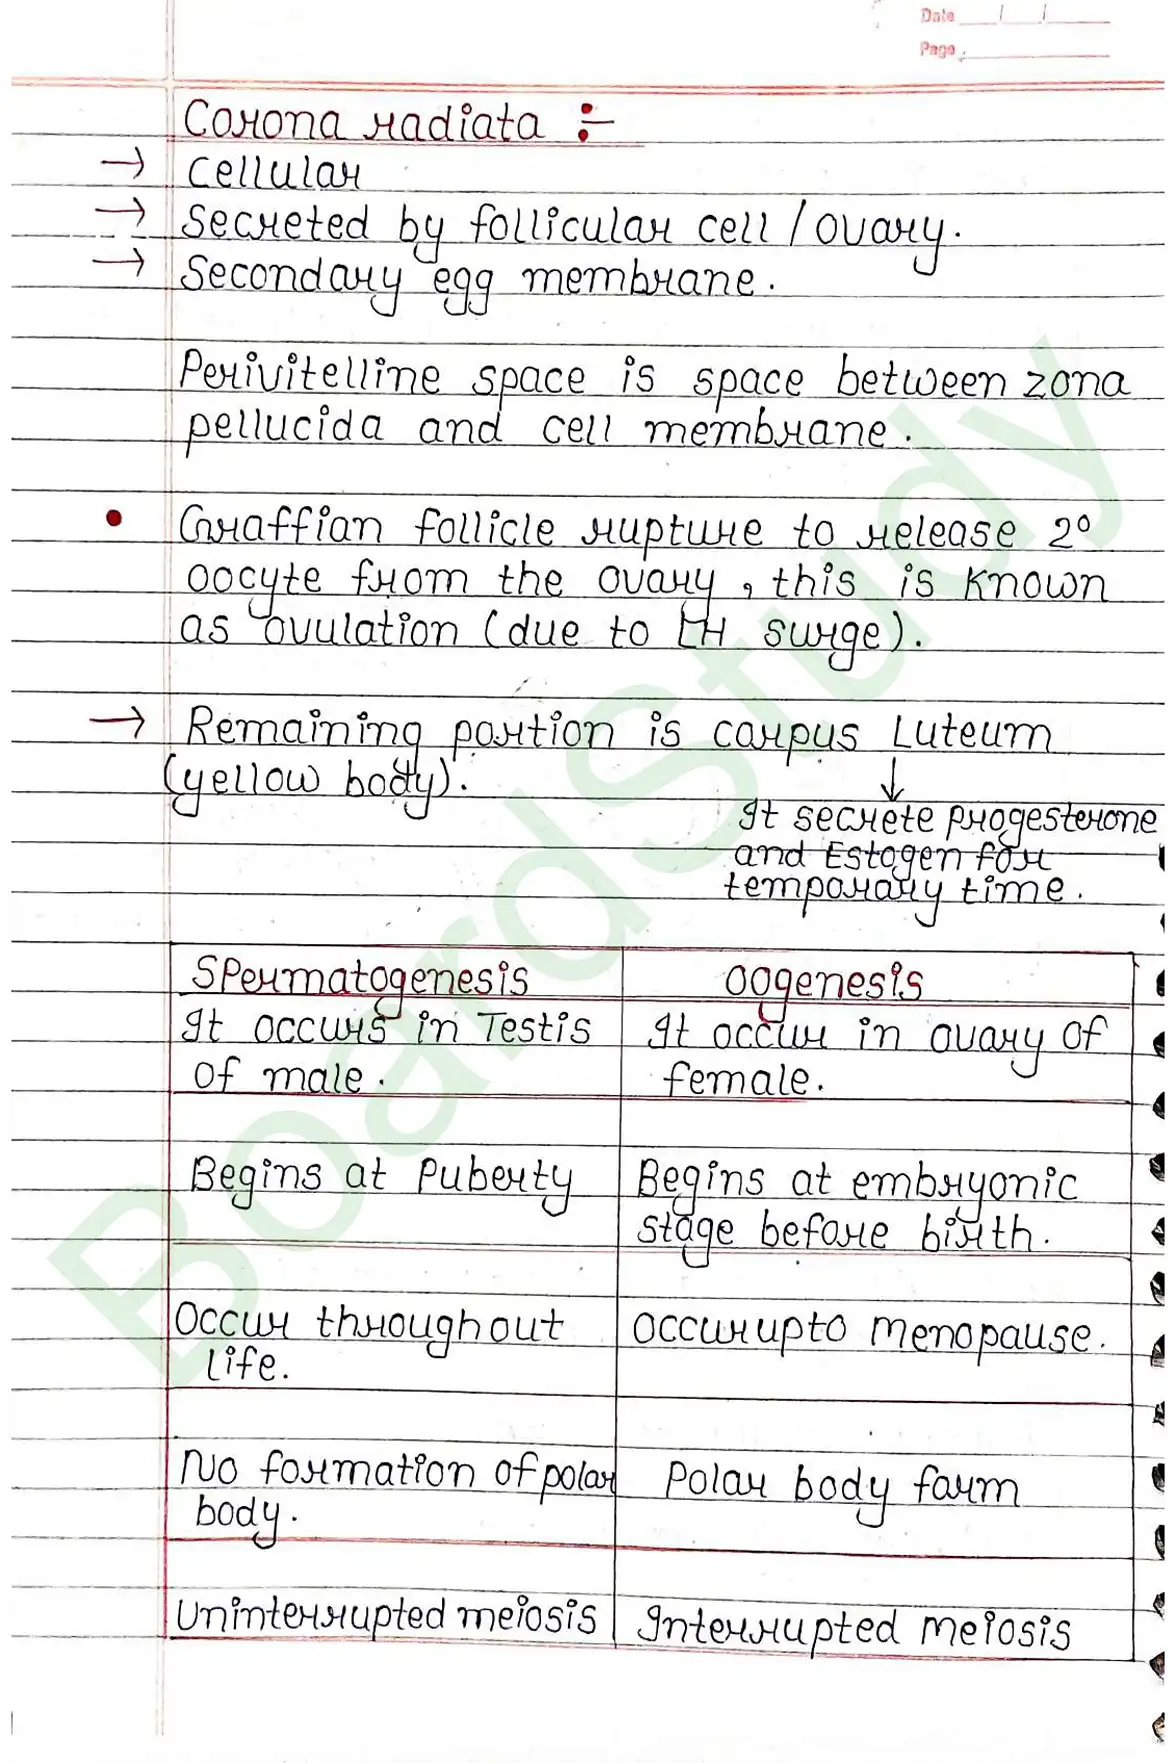 Date
Page
Corona radiata :-
→ Cellular
→ Secreted by follicular cell / ovary.
→ Secondary egg membrane.
Perivitelline space is space between zona
pellucida and cell membrane.
• Graffian follicle rupture to release 2°
oocyte from the ovary, this is known
as ovulation (due to LH surge).
→ Remaining portion is corpus Luteum
(yellow body).
↓
It secrete progesterone
and Estogen for
temporary time.
Spermatogenesis
oogenesis
It occurs in Testis
of male.
It occur in ovary of
female.
Begins at Puberty
Begins at embryonic
stage before birth.
Occur throughout
life.
Occur upto Menopause.
No formation of polar
body.
Polar body form
Uninterrupted meiosis
Interrupted Meiosis
BoardStudy